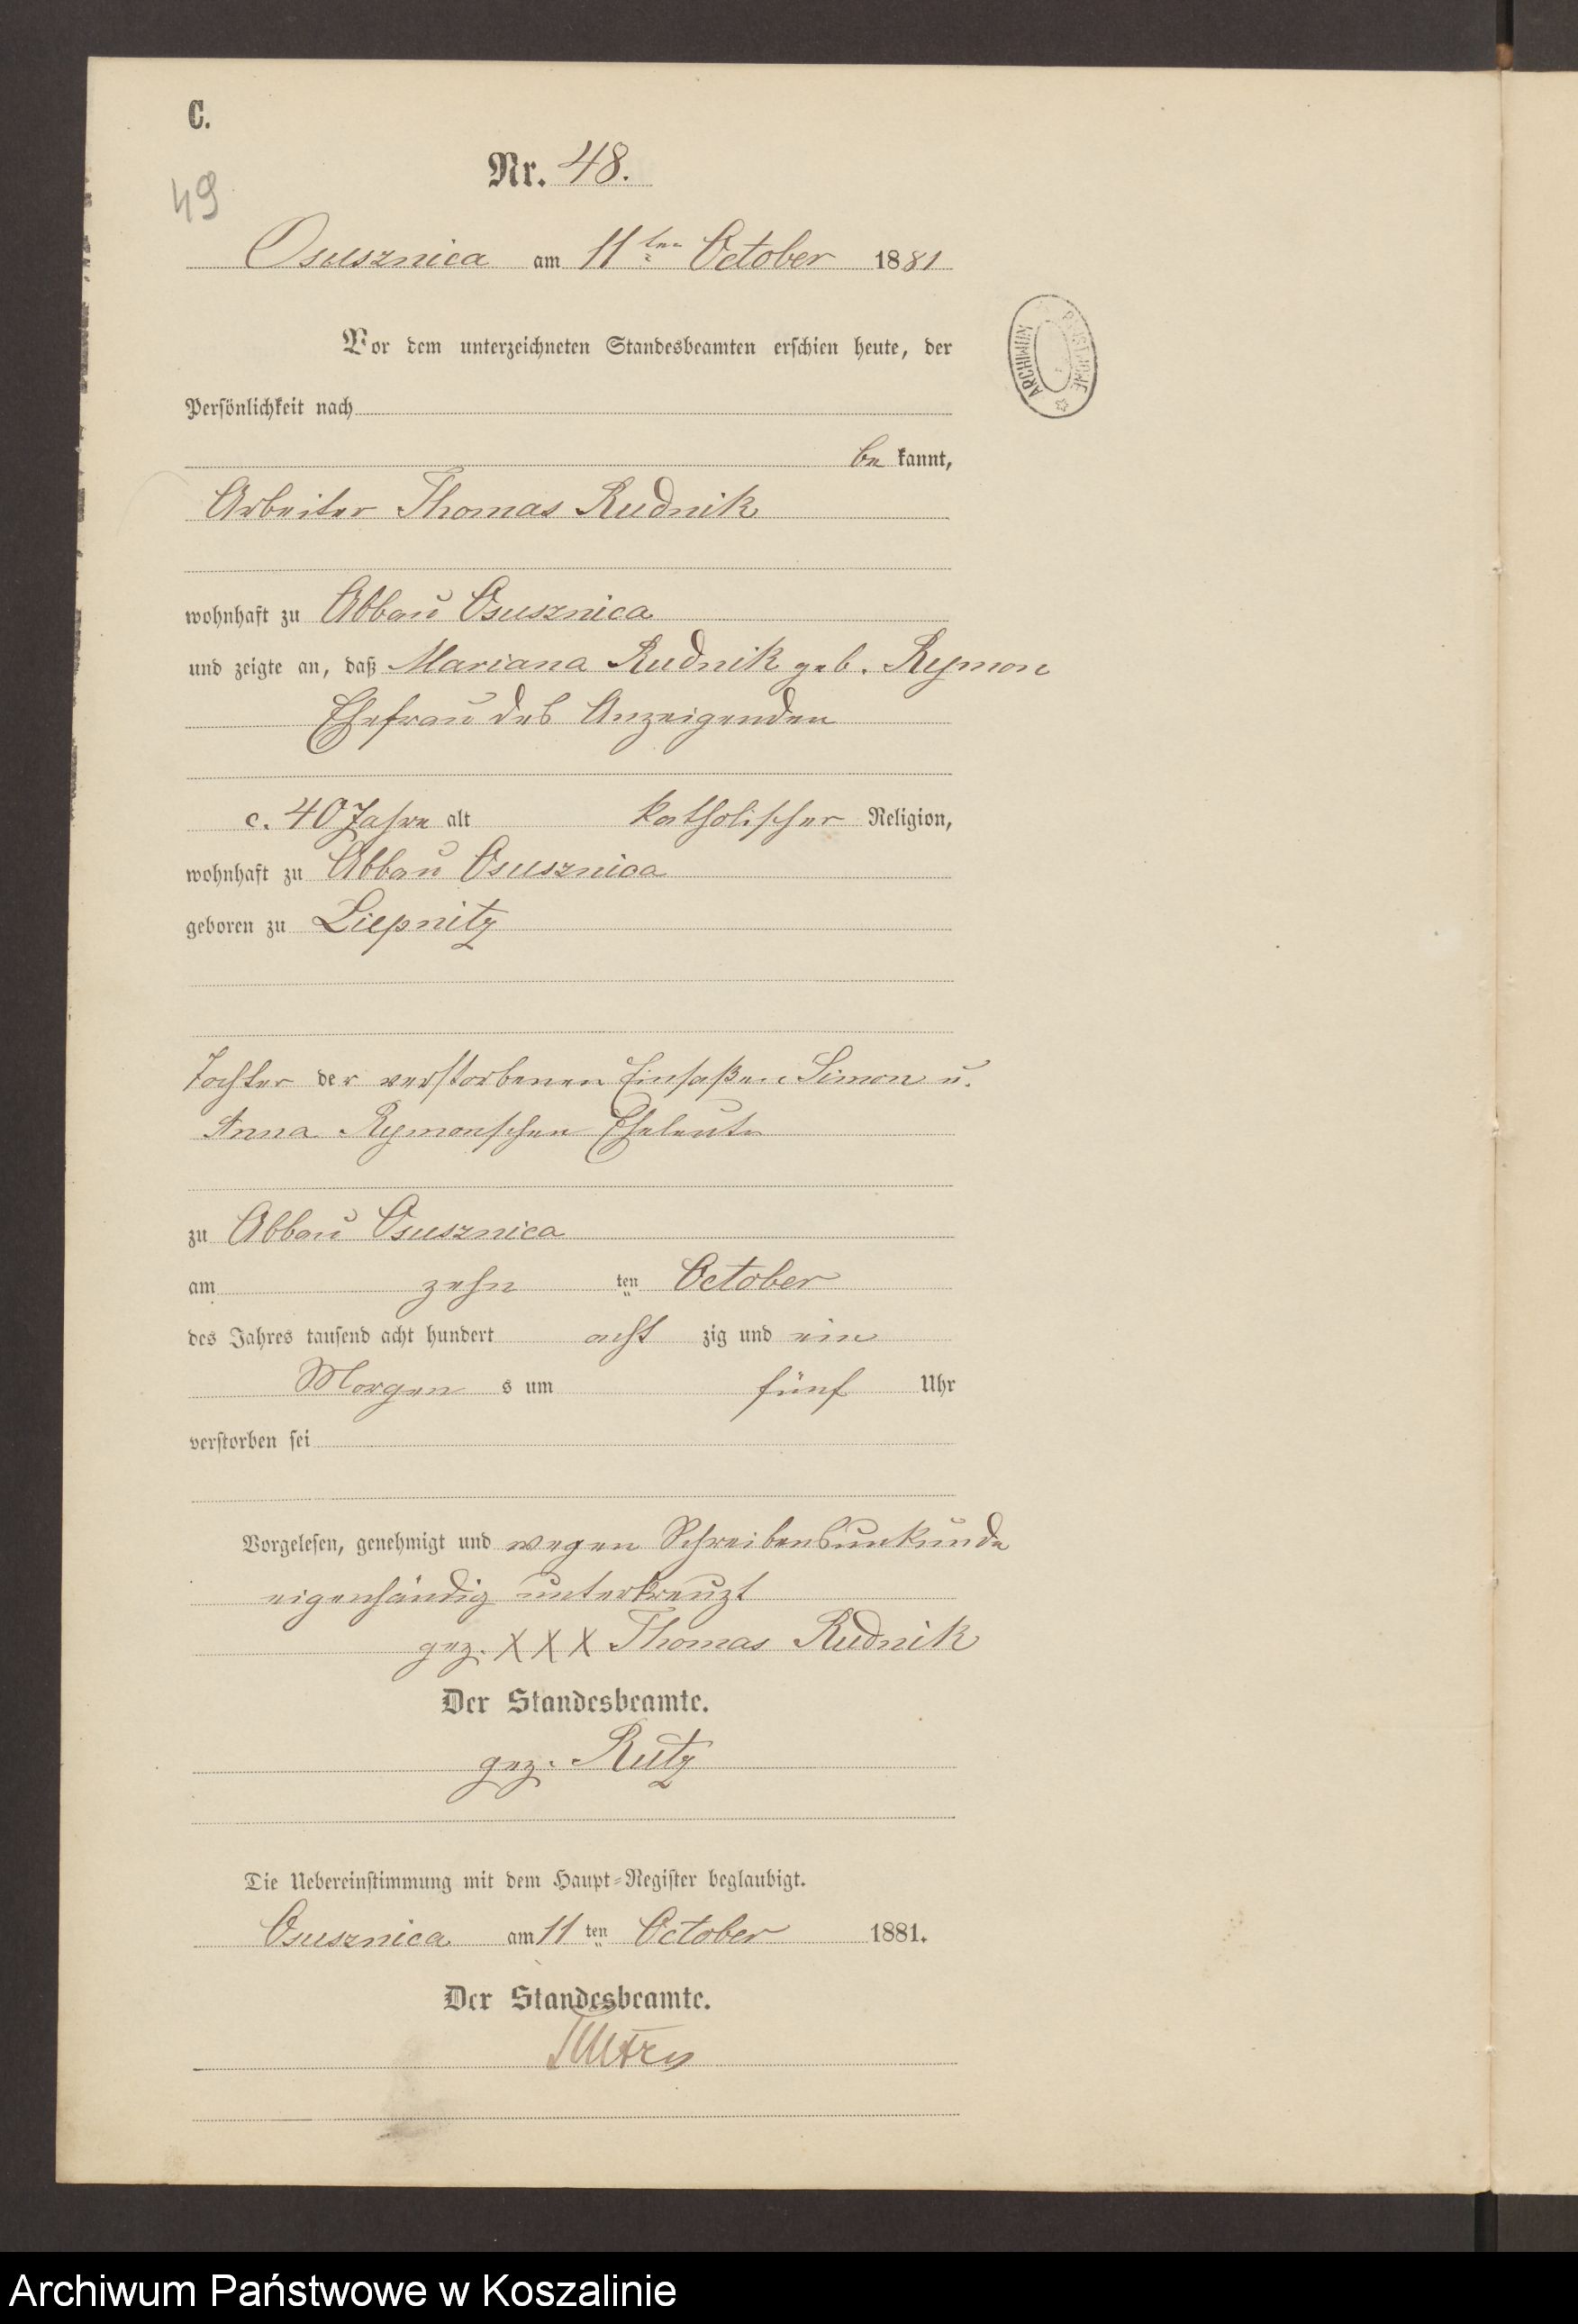 C.
Nr. 48.
49
Osusznica am 11ten October 1881
Vor dem unterzeichneten Standesbeamten erschien heute, der
Persönlichkeit nach
be kannt,
Arbeiter Thomas Rudnik
wohnhaft zu Abbau Osusznica
und zeigte an, daß Mariana Rudnik geb. Rymon
Ehefrau des Anzeigenden
c. 40 Jahre alt katholischer Religion,
wohnhaft zu Abbau Osusznica
geboren zu Liepnitz
Tochter der verstorbenen Einsaßen Simon u.
Anna Rymonschen Eheleute
zu Abbau Osusznica
am zehn ten October
des Jahres tausend acht hundert acht zig und ein
Morgen s um fünf Uhr
verstorben sei
Vorgelesen, genehmigt und wegen Schreibensunkunde
eigenhändig unterkreuzt
gez. XXX Thomas Rudnik
Der Standesbeamte.
gez. Rutz
Die Uebereinstimmung mit dem Haupt-Register beglaubigt.
Osusznica am 11 ten October 1881.
Der Standesbeamte.
ARCHIWUM PAŃSTWOWE
Archiwum Państwowe w Koszalinie